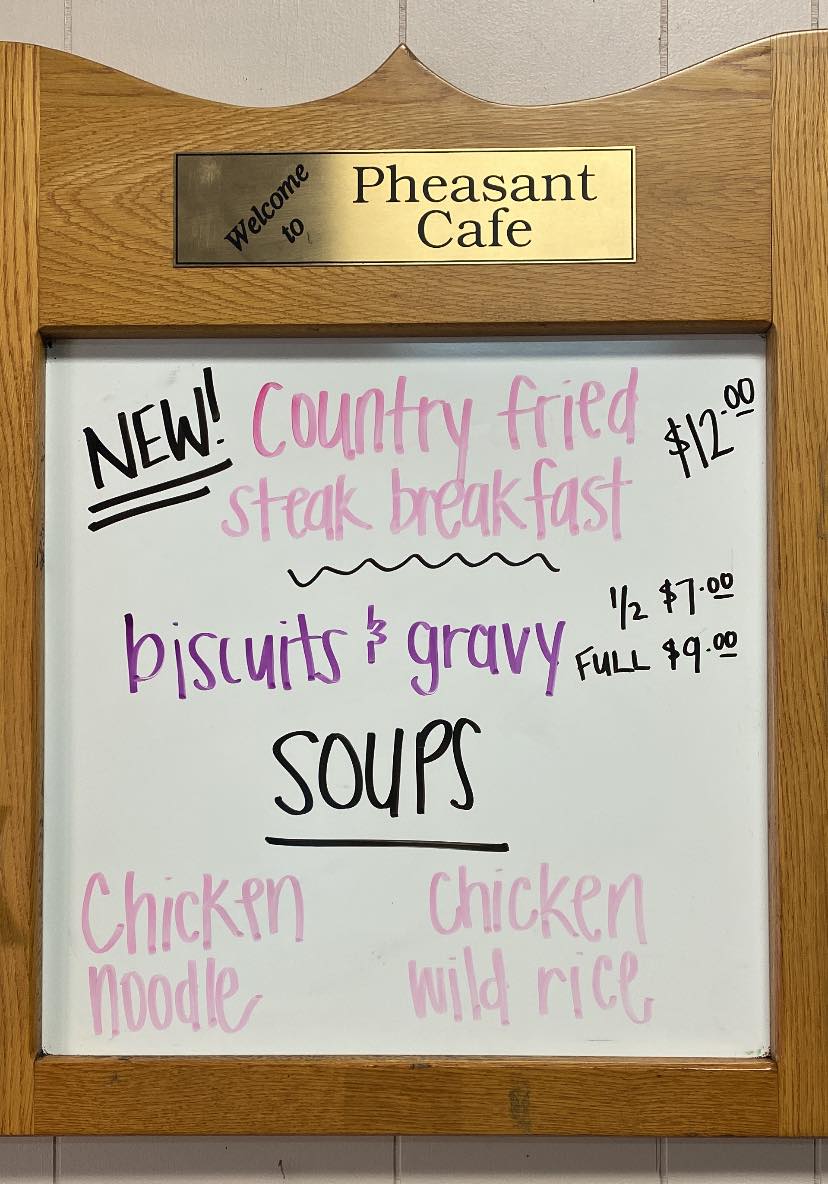 Welcome
to
Pheasant
Cafe
NEW! Country fried $12.00
steak breakfast
1/2 $7.00
biscuits & gravy FULL $9.00
SOUPS
Chicken
noodle
Chicken
wild rice